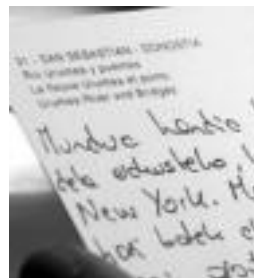 31 - SAN SEBASTIAN - DONOSTIA
Rio Urumea y puentes
Le fleuve Urumea et ponts
Urumea River and Bridges
Mundua handia
dela
New York. M
hori batek